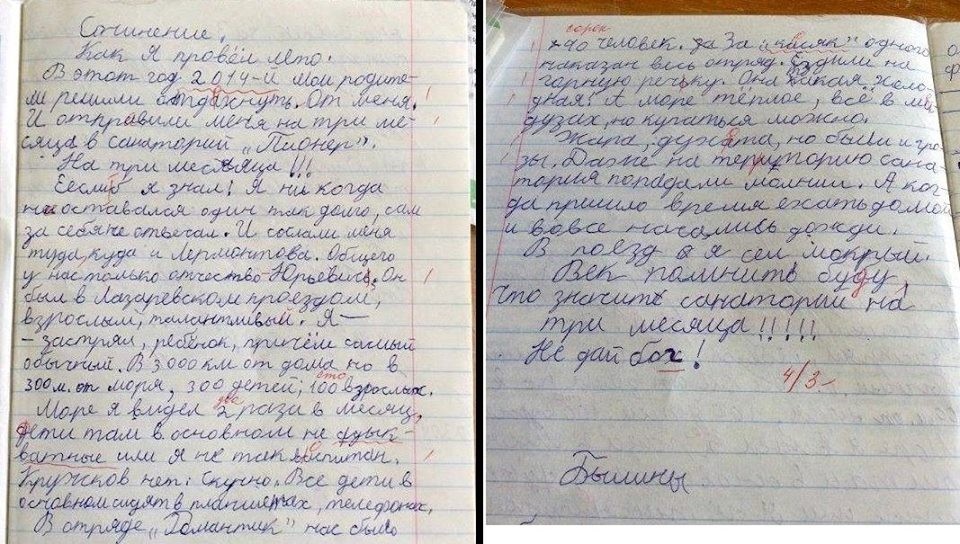 Сочинение.
Как я провёл лето.
В этот год 2014-й мои родите-
ли решили отдахнуть. От меня.
И отправили меня на три ме-
сяца в санаторий „Пионер".
На три месяца!!!
Еесли б я знал! Я ни когда
не оставался один так долго, сам
за себя не отвечал. И сослали меня
туда, куда и Лермонтова. Общего
у нас только отчество Юрьевич. Он
был в Лазаревском проездом,
взрослый, талантливый. Я —
— застрял, ребёнок, причём самый
обычный. В 3000 км от дома но в
300 м. от моря, 300 детей, 100 взрослых.
сто
Море я видел 2 раза в месяц,
две
дети там в основном не адык-
ватные или я не так воспитан.
Кружков нет. Скучно. Все дети в
основном сидят в планшетах, телефонах.
В отряде „Романтик" нас было
сорок
40 человек. да За „касяк" одного
наказан весь отряд. Ездили на
горную речьку. Она такая холо-
дная! А море тёплое, всё в ме
дузах, но купаться можно.
Жара, духата, но были и гро-
зы. Даже на територию сана-
тория попадали молнии. А ког-
да пришло время ехать домой
и вовсе начались дожди.
В поезд я сел мокрый.
Век помнить буду,
что значить санаторий на
три месяца!!!!!
Не дай бог!
4/3-
Былины